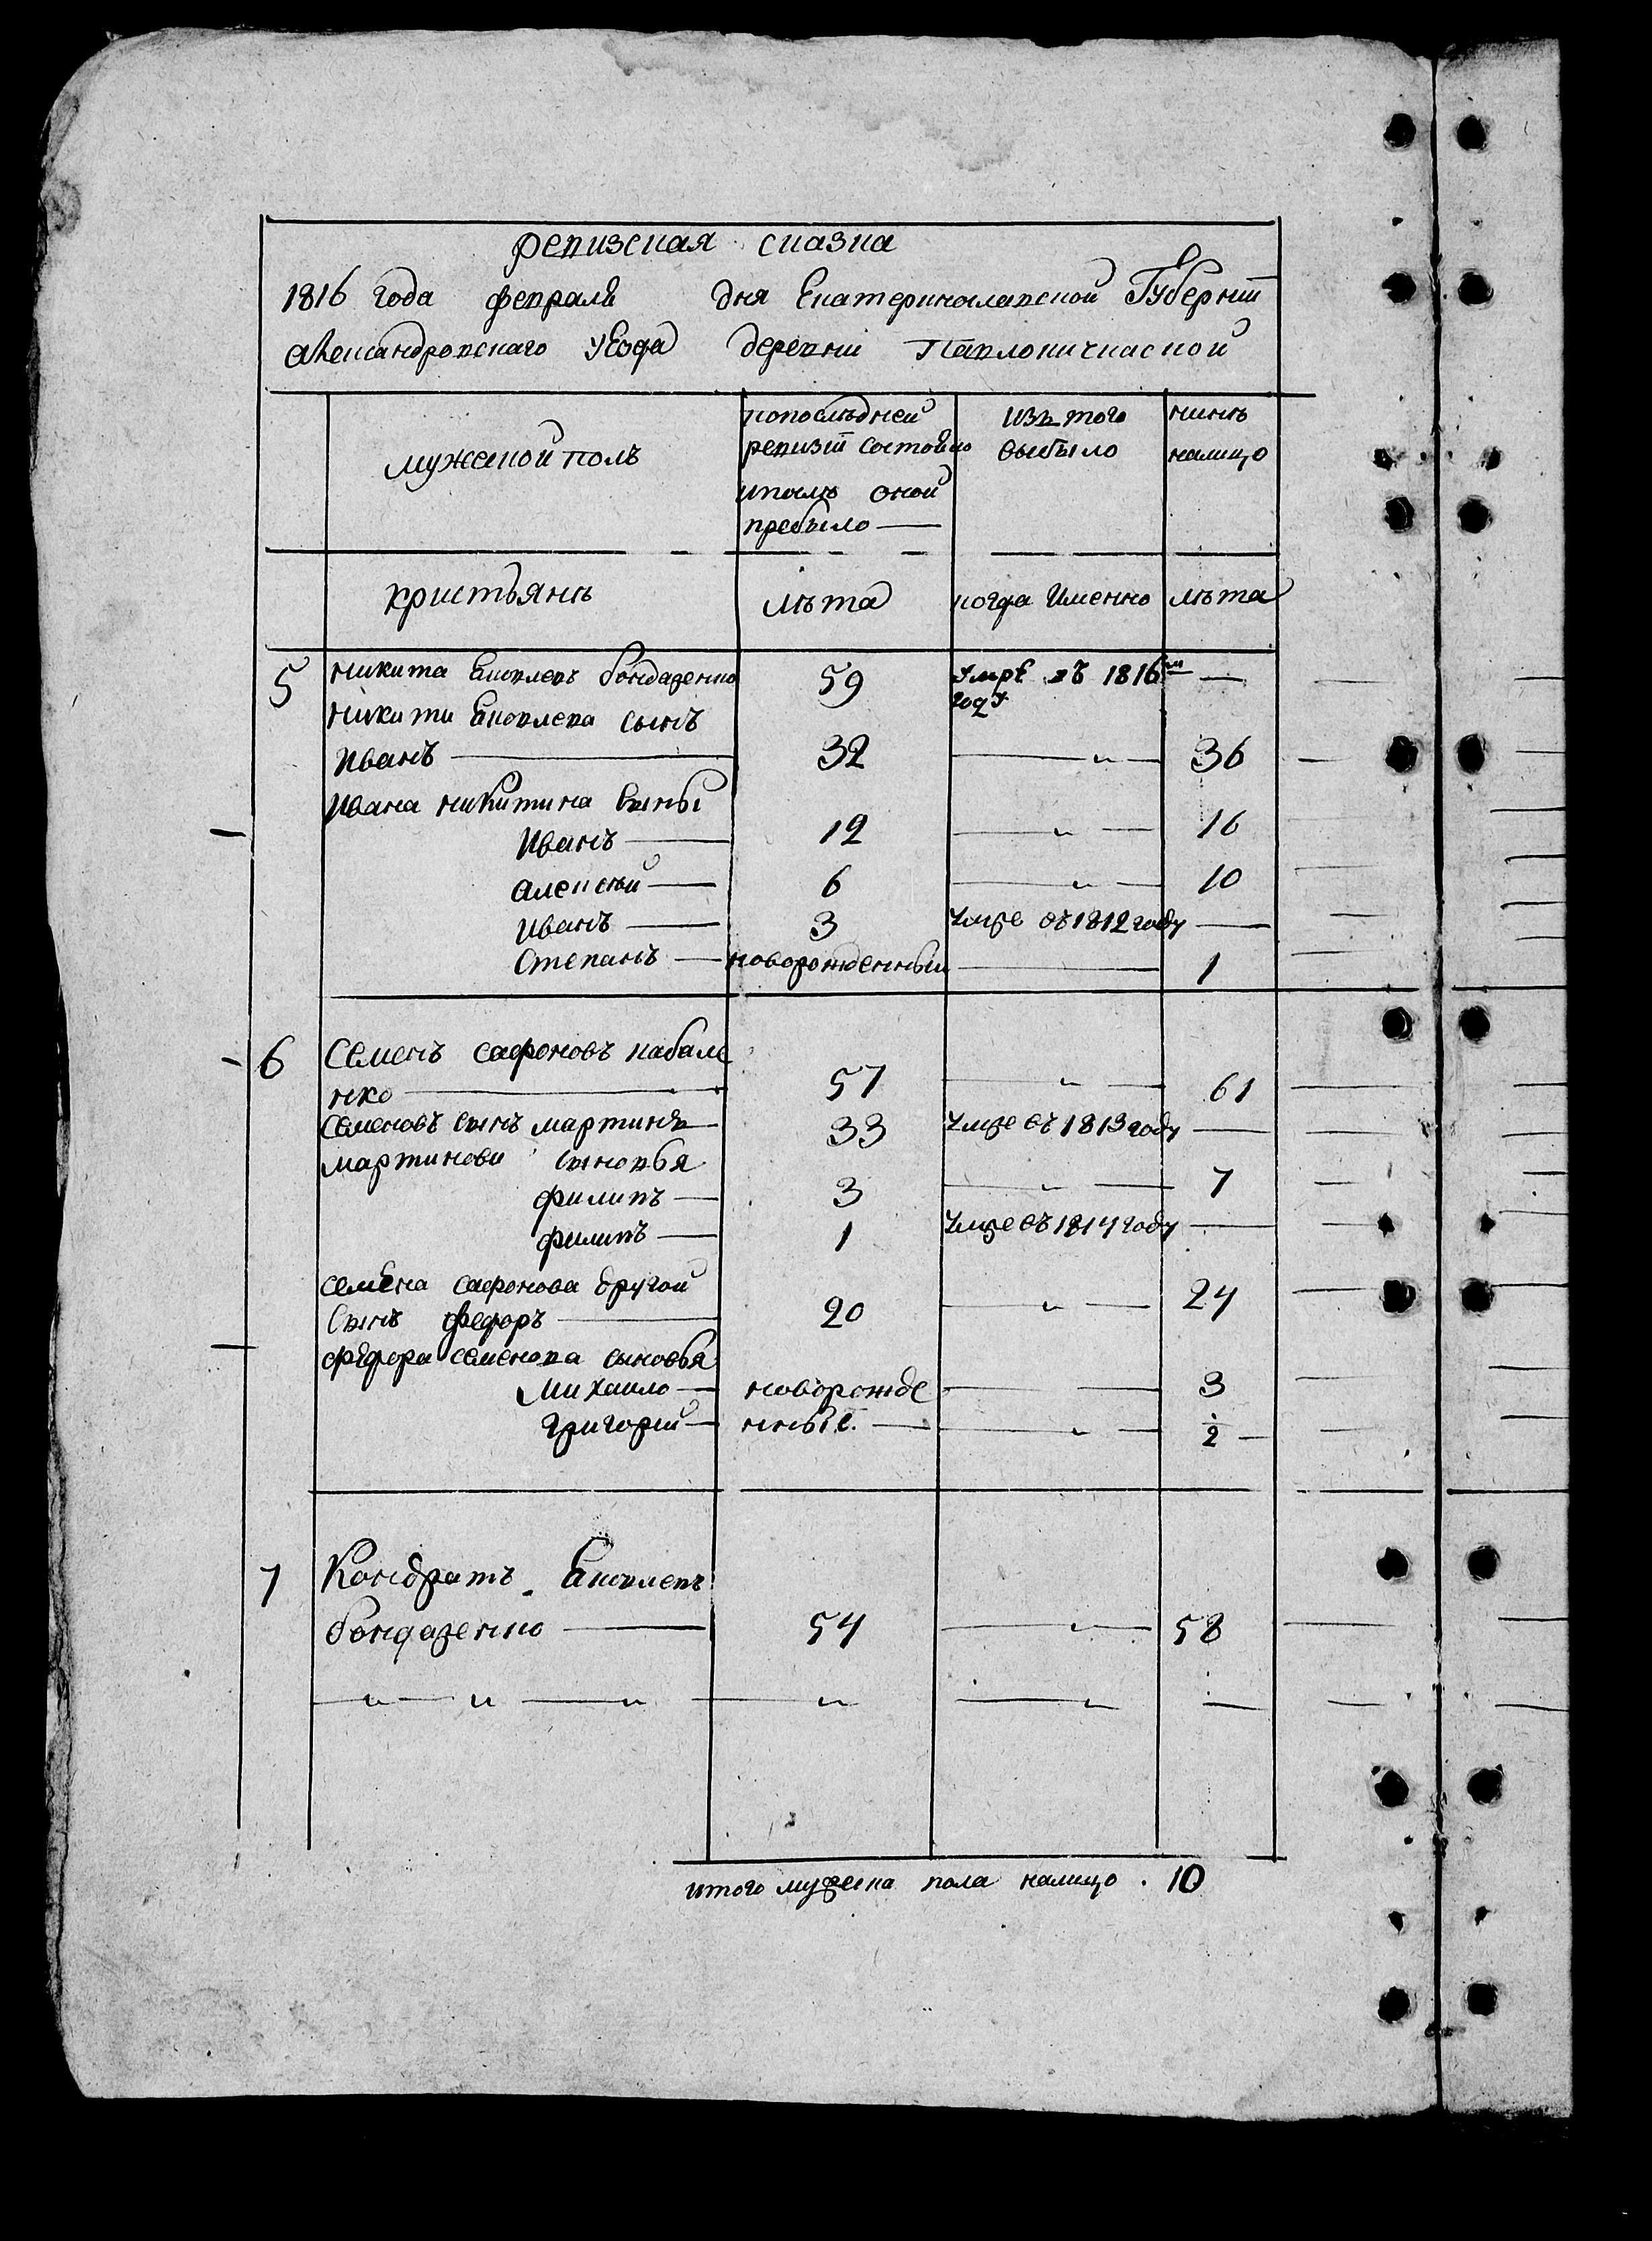 Ревизская сказка
1816 года февраля дня Екатеринославской Губернiи
Александровскаго уезда деревни Павлокичкаской
мужеской полъ
попоследней
ревизiи состояло
ипосль оной
пребыло —
изъ того
выбыло
нинъ
налицо
кристьянъ
лъта
когда Именно
лъта
5 никита Яковлевъ бондаренко 59 Умре въ 1816м году —
никити Яковлева сынъ
Иванъ — 32 — " — 36
Ивана никитина сыны
Иванъ — 12 — " — 16
алексъй — 6 — " — 10
иванъ — 3 Умре въ 1812 году —
Степанъ — новорожденный — 1
6 Семенъ сафоновъ кабале
нко — 57 — " — 61
Семеновъ сынъ мартинъ — 33 Умре въ 1813 году —
мартинови сыновья
филипъ — 3 — " — 7
филипъ — 1 Умре въ 1814 году —
семена сафонова другой
сынъ федоръ — 20 — " — 24
федора семенова сыновья
Михаило — новорожде — 3
григорий — нные. — " — 2 —
7 Кондратъ Яковлевъ
бондаренко — 54 — " — 58
— " — " — " — " — " —
итого мужеска пола налицо . 10